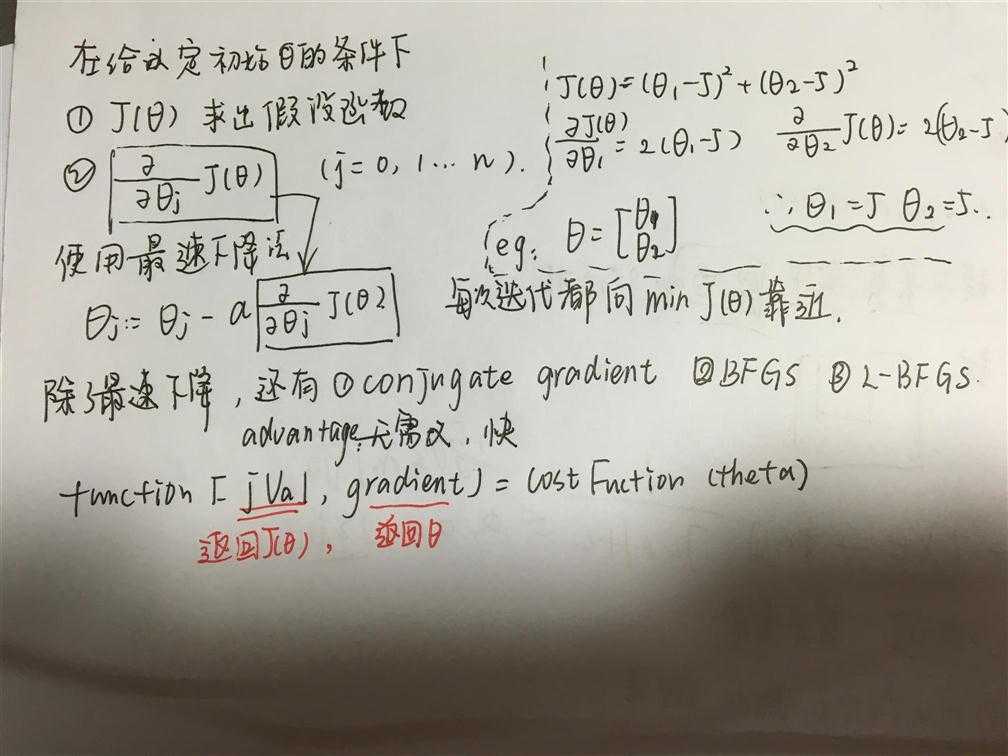 在给定初始θ的条件下
① J(θ) 求出假设函数
② ∂/∂θj J(θ) (j=0, 1... n).
使用最速下降法
θj:= θj - α ∂/∂θj J(θ)
J(θ)=(θ₁-5)²+(θ₂-5)²
∂J(θ)/∂θ₁=2(θ₁-5) ∂/∂θ₂ J(θ)=2(θ₂-5)
eg: θ=[θ₁ θ₂] ∴ θ₁=5 θ₂=5..
每次迭代都向min J(θ)靠近.
除了最速下降, 还有①conjugate gradient ②BFGS ③L-BFGS.
advantage:无需α, 快
function [jVal, gradient]=CostFuction (theta)
返回J(θ), 返回θ